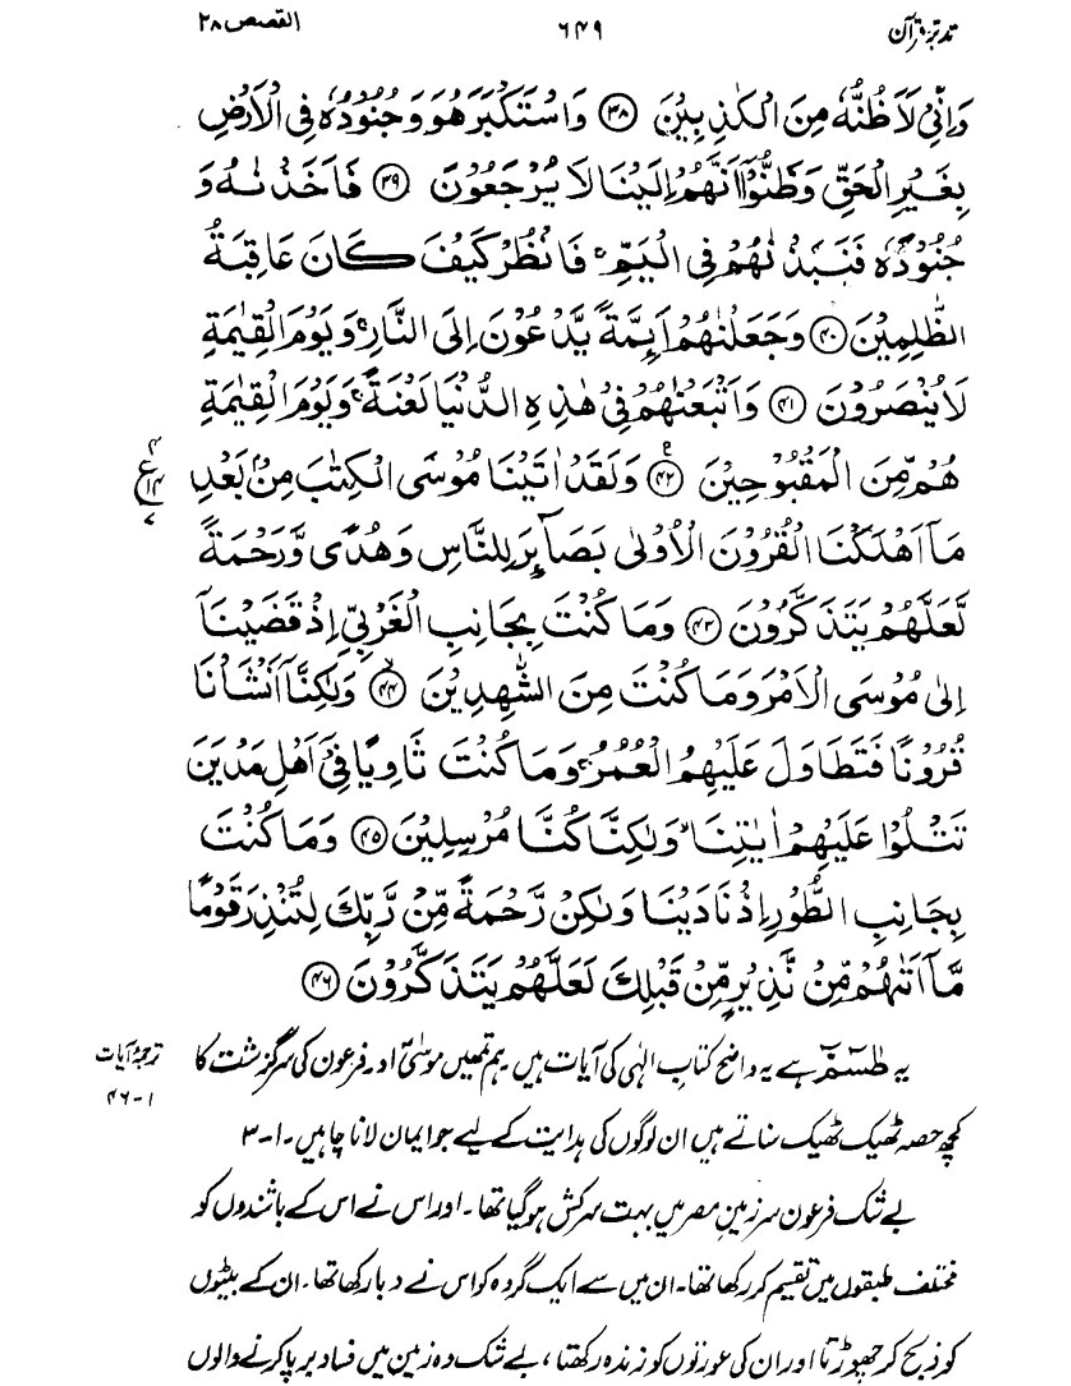 تدبرِ قرآن ۶۴۹ القصص ۲۸
وَاِنِّىْ لَاَظُنُّهٗ مِنَ الْكٰذِبِيْنَ ﴿۳۸﴾ وَاسْتَكْبَرَ هُوَ وَجُنُوْدُهٗ فِى الْاَرْضِ
بِغَيْرِ الْحَقِّ وَظَنُّوْٓا اَنَّهُمْ اِلَيْنَا لَا يُرْجَعُوْنَ ﴿۳۹﴾ فَاَخَذْنٰهُ وَ
جُنُوْدَهٗ فَنَبَذْنٰهُمْ فِى الْيَمِّ ۚ فَانْظُرْ كَيْفَ كَانَ عَاقِبَةُ
الظّٰلِمِيْنَ ﴿۴۰﴾ وَجَعَلْنٰهُمْ اَئِمَّةً يَّدْعُوْنَ اِلَى النَّارِ ۚ وَيَوْمَ الْقِيٰمَةِ
لَا يُنْصَرُوْنَ ﴿۴۱﴾ وَاَتْبَعْنٰهُمْ فِىْ هٰذِهِ الدُّنْيَا لَعْنَةً ۚ وَيَوْمَ الْقِيٰمَةِ
هُمْ مِّنَ الْمَقْبُوْحِيْنَ ﴿۴۲﴾ وَلَقَدْ اٰتَيْنَا مُوْسَى الْكِتٰبَ مِنْۢ بَعْدِ
۴ ع ۱۴ ۷
مَآ اَهْلَكْنَا الْقُرُوْنَ الْاُوْلٰى بَصَآئِرَ لِلنَّاسِ وَهُدًى وَّرَحْمَةً
لَّعَلَّهُمْ يَتَذَكَّرُوْنَ ﴿۴۳﴾ وَمَا كُنْتَ بِجَانِبِ الْغَرْبِىِّ اِذْ قَضَيْنَآ
اِلٰى مُوْسَى الْاَمْرَ وَمَا كُنْتَ مِنَ الشّٰهِدِيْنَ ﴿۴۴﴾ وَلٰكِنَّآ اَنْشَاْنَا
قُرُوْنًا فَتَطَاوَلَ عَلَيْهِمُ الْعُمُرُ ۚ وَمَا كُنْتَ ثَاوِيًا فِىْٓ اَهْلِ مَدْيَنَ
تَتْلُوْا عَلَيْهِمْ اٰيٰتِنَا ۙ وَلٰكِنَّا كُنَّا مُرْسِلِيْنَ ﴿۴۵﴾ وَمَا كُنْتَ
بِجَانِبِ الطُّوْرِ اِذْ نَادَيْنَا وَلٰكِنْ رَّحْمَةً مِّنْ رَّبِّكَ لِتُنْذِرَ قَوْمًا
مَّآ اَتٰىهُمْ مِّنْ نَّذِيْرٍ مِّنْ قَبْلِكَ لَعَلَّهُمْ يَتَذَكَّرُوْنَ ﴿۴۶﴾
ترجمۂ آیات
۱-۴۶
یہ طٰسٓمّٓ ہے یہ واضح کتابِ الٰہی کی آیات ہیں۔ ہم تمھیں موسیٰؑ اور فرعون کی سرگزشت کا
کچھ حصہ ٹھیک ٹھیک سناتے ہیں ان لوگوں کی ہدایت کے لیے جو ایمان لانا چاہیں۔ ۱-۳
بے شک فرعون سرزمینِ مصر میں بہت سرکش ہو گیا تھا۔ اور اس نے اس کے باشندوں کو
مختلف طبقوں میں تقسیم کر رکھا تھا۔ ان میں سے ایک گروہ کو اس نے دبا رکھا تھا۔ ان کے بیٹوں
کو ذبح کر چھوڑتا اور ان کی عورتوں کو زندہ رکھتا، بے شک وہ زمین میں فساد برپا کرنے والوں